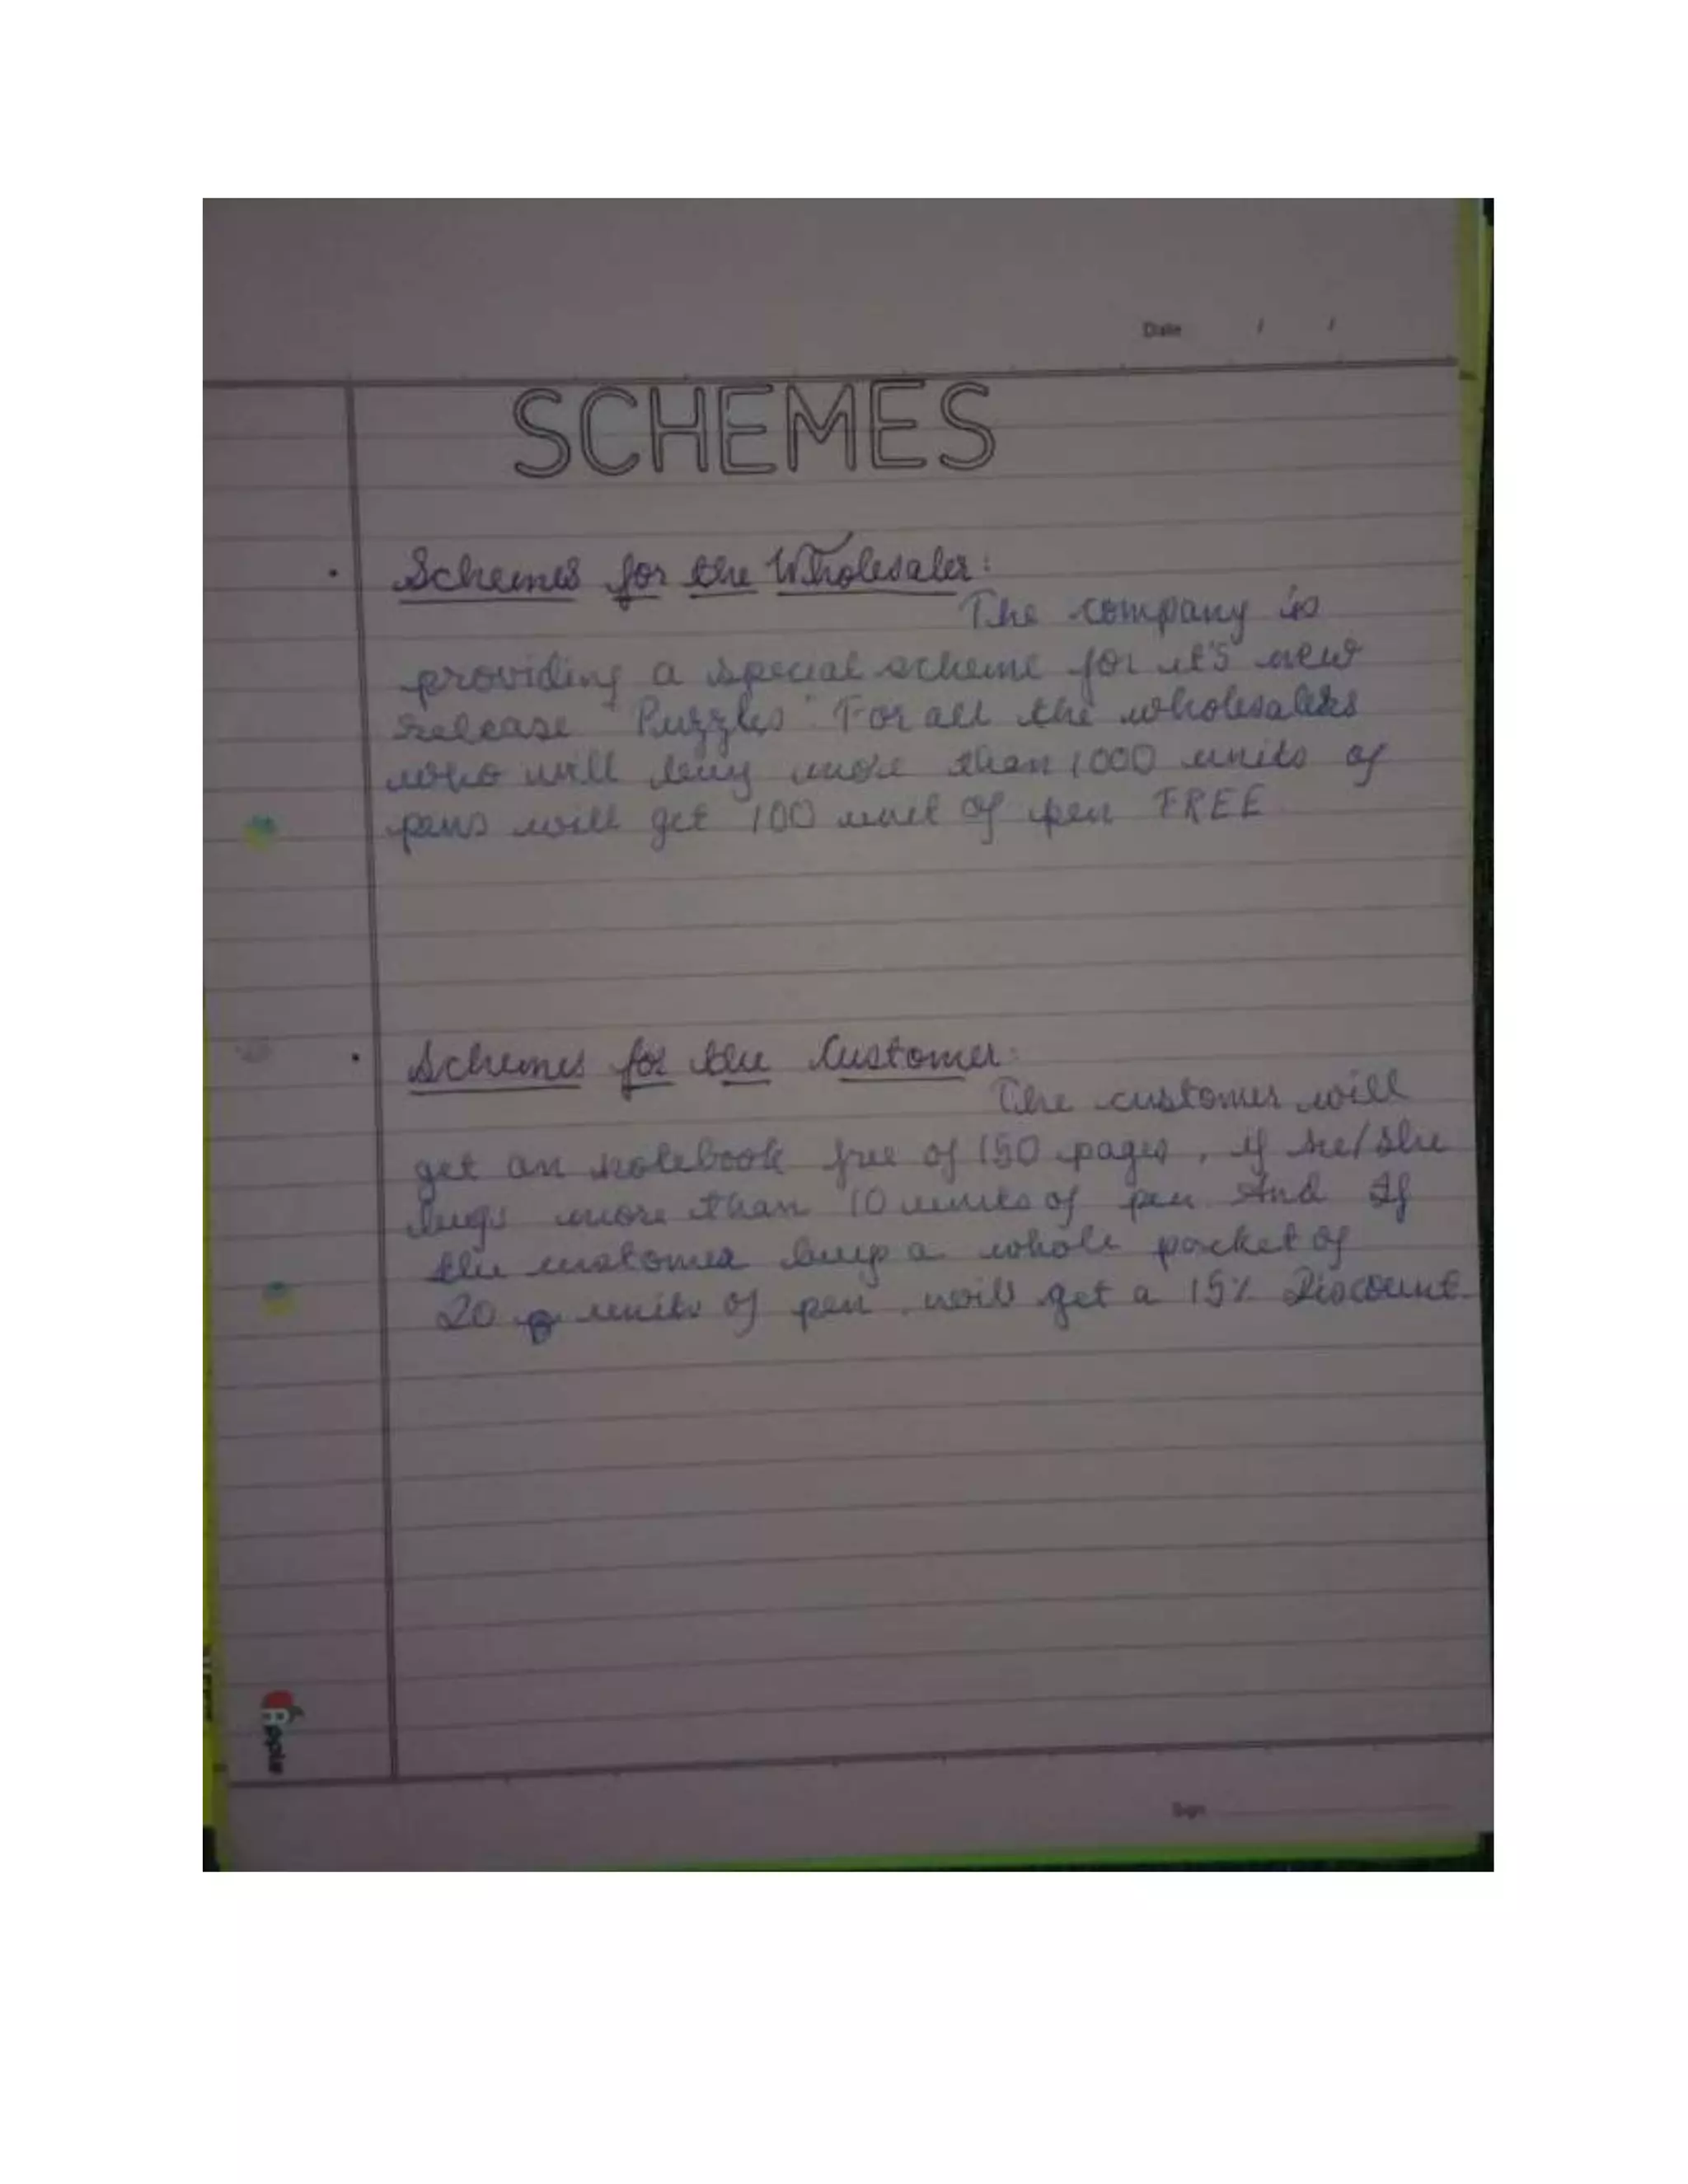 Date / /
SCHEMES
• Schemes for the Wholesaler:
The company is
providing a special scheme for it's new
release "Puzzles" For all the wholesalers
who will buy more than 1000 units of
pens will get 100 unit of pen FREE
• Schemes for the Customer:
The customer will
get an notebook free of 150 pages, if he/she
buys more than 10 units of pen And If
the customer buys a whole packet of
20 units of pen will get a 15% Discount.
Apple
Sign